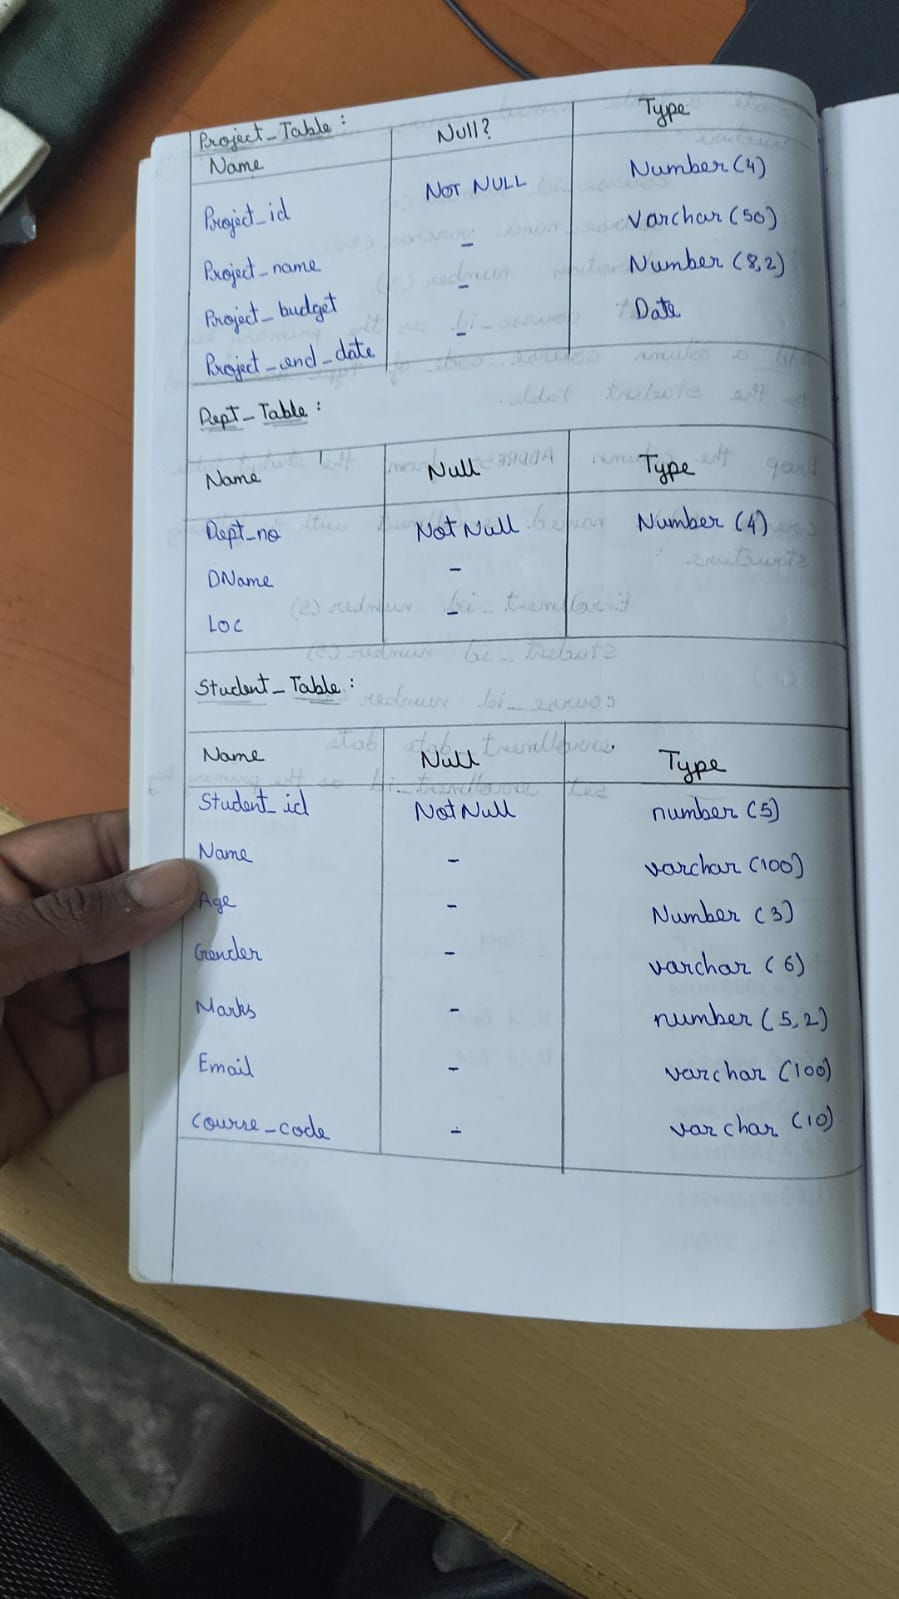 Project_Table :
Name Null? Type
Project_id NOT NULL Number (4)
Project_name - Varchar (50)
Project_budget - Number (8,2)
Project_end_date - Date
Dept_Table :
Name Null Type
Dept_no Not Null Number (4)
DName -
Loc -
Student_Table :
Name Null Type
Student_id Not Null number (5)
Name - varchar (100)
Age - Number (3)
Gender - varchar (6)
Marks - number (5,2)
Email - varchar (100)
course_code - varchar (10)